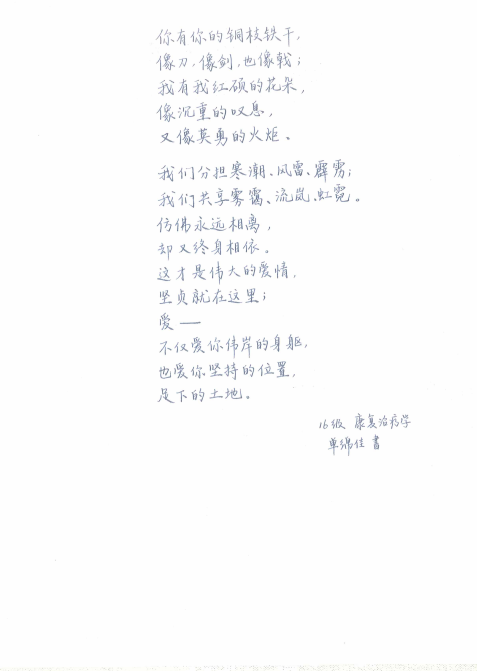 你有你的铜枝铁干，
像刀，像剑，也像戟；
我有我红硕的花朵，
像沉重的叹息，
又像英勇的火炬。
我们分担寒潮、风雷、霹雳；
我们共享雾霭、流岚、虹霓。
仿佛永远相离，
却又终身相依。
这才是伟大的爱情，
坚贞就在这里；
爱——
不仅爱你伟岸的身躯，
也爱你坚持的位置，
足下的土地。
16级 康复治疗学
单绵佳 书